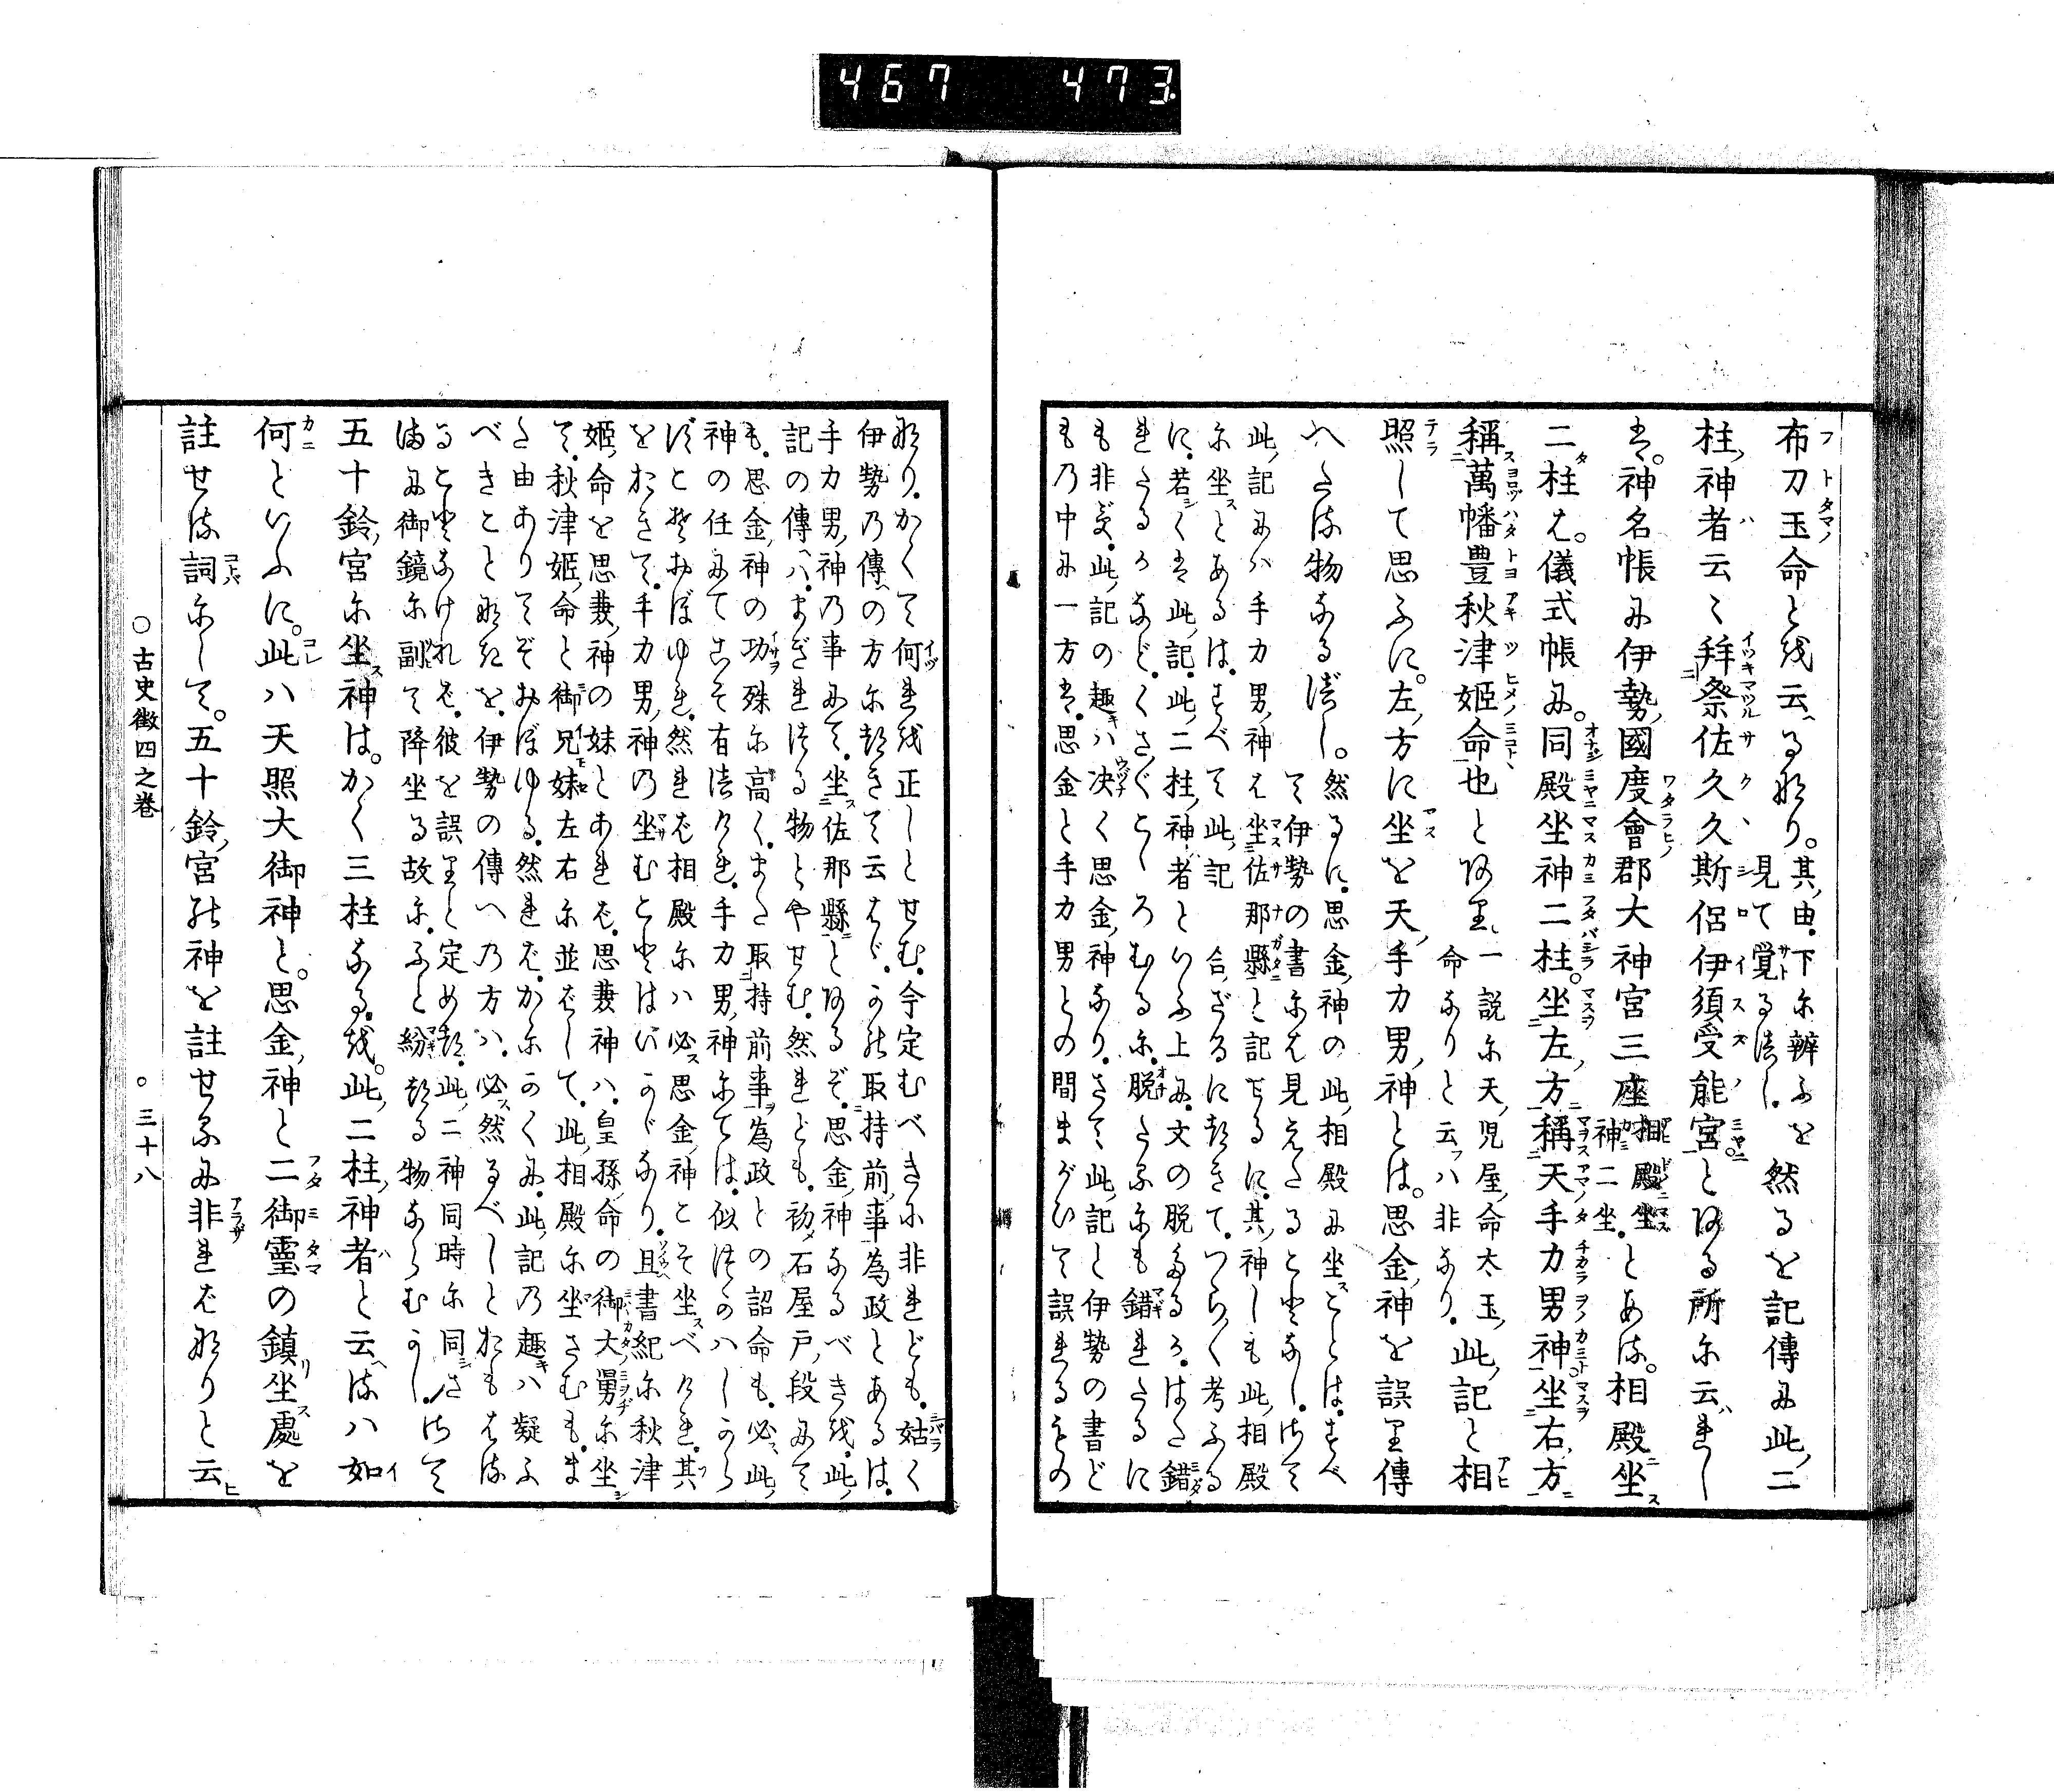 467 473
布刀玉命と或云へるなり。其由下に辨ふを見て覚るべし。然るを記傳に此二
柱神者云々拜祭佐久久斯侶伊須受能宮とある所に云れし
は。神名帳に伊勢國度會郡大神宮三座相殿坐神二坐とある。相殿坐
二柱は。儀式帳に。同殿坐神二柱。坐左方稱天手力男神。坐右方
稱萬幡豊秋津姫命也とあり一説に天児屋命太玉命なりと云ハ非なり。此記と相
照して思ふに。左方に坐を天手力男神とは。思金神を誤り傳
へたる物なるべし。然るに思金神の此相殿に坐ことは。すべ
て伊勢の書には見えたることなし。さて
此記には手力男神は坐佐那縣と記せるに。其神しも此相殿
に坐とあるは。すべて此記に合ざるに就きて。つらつら考ふる
に。若くは此記。此二柱神者といふ上に。文の脱たるか。はた錯
れたるかなど。くさぐさこころむるに。脱たるにも錯れたるに
も非ず。此記の趣ハ決く思金神なり。さて此記と伊勢の書ど
もの中に一方は。思金と手力男との間まがひて誤れるもの
なり。かくて何れを正しとせむ。今定むべきに非れども。姑く
伊勢の傳の方に就きて云はば。かの取持前事為政とあるは。
手力男神の事にて。坐佐那縣とあるぞ。思金神なるべきを。此
記の傳ハ。まぎれつる物とやせむ。然れども。初石屋戸段にて
も。思金神の功殊に高く。また取持前事為政との詔命も。必此
神の任にてこそ有べけれ。手力男神にては。似つかハしから
ずこそおぼゆれ。然れば相殿にハ必思金神こそ坐べけれ。其
をおきて。手力男神の坐むことはいかがなり。且書紀に秋津
姫命を思兼神の妹とあれば。思兼神ハ。皇孫命の御大舅に坐
て。秋津姫命と御兄妹左右に並ばして。此相殿に坐さむも。ま
た由ありてぞおぼゆる。然れば。かにかくに。此記の趣ハ疑ふ
べきことなきを。伊勢の傳への方ハ。必然るべしとおもはる
ることなければ。彼を誤りと定めつ。此二神同時に同じさ
まに御鏡に副て降坐る故に。ふと紛つる物ならむかし。さて
五十鈴宮に坐神は。かく三柱なるを。此二柱神者と云へるハ如
何といふに。此ハ天照大御神と。思金神と二御靈の鎮坐處を
註せる詞にして。五十鈴宮の神を註せるに非ればなりと云
○古史徴四之巻
○三十八